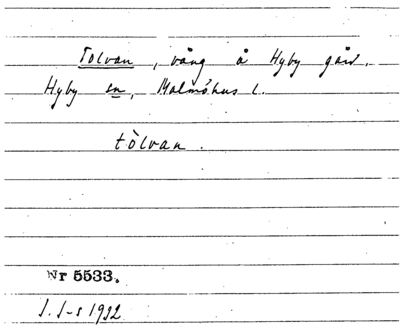 Tolvan, vång å Hyby gård.
Hyby sn, Malmöhus l.
tòlvan.
Nr 5533.
1922